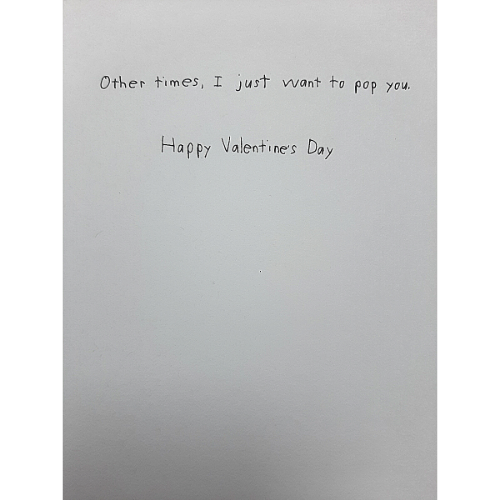 Other times, I just want to pop you.
Happy Valentine's Day